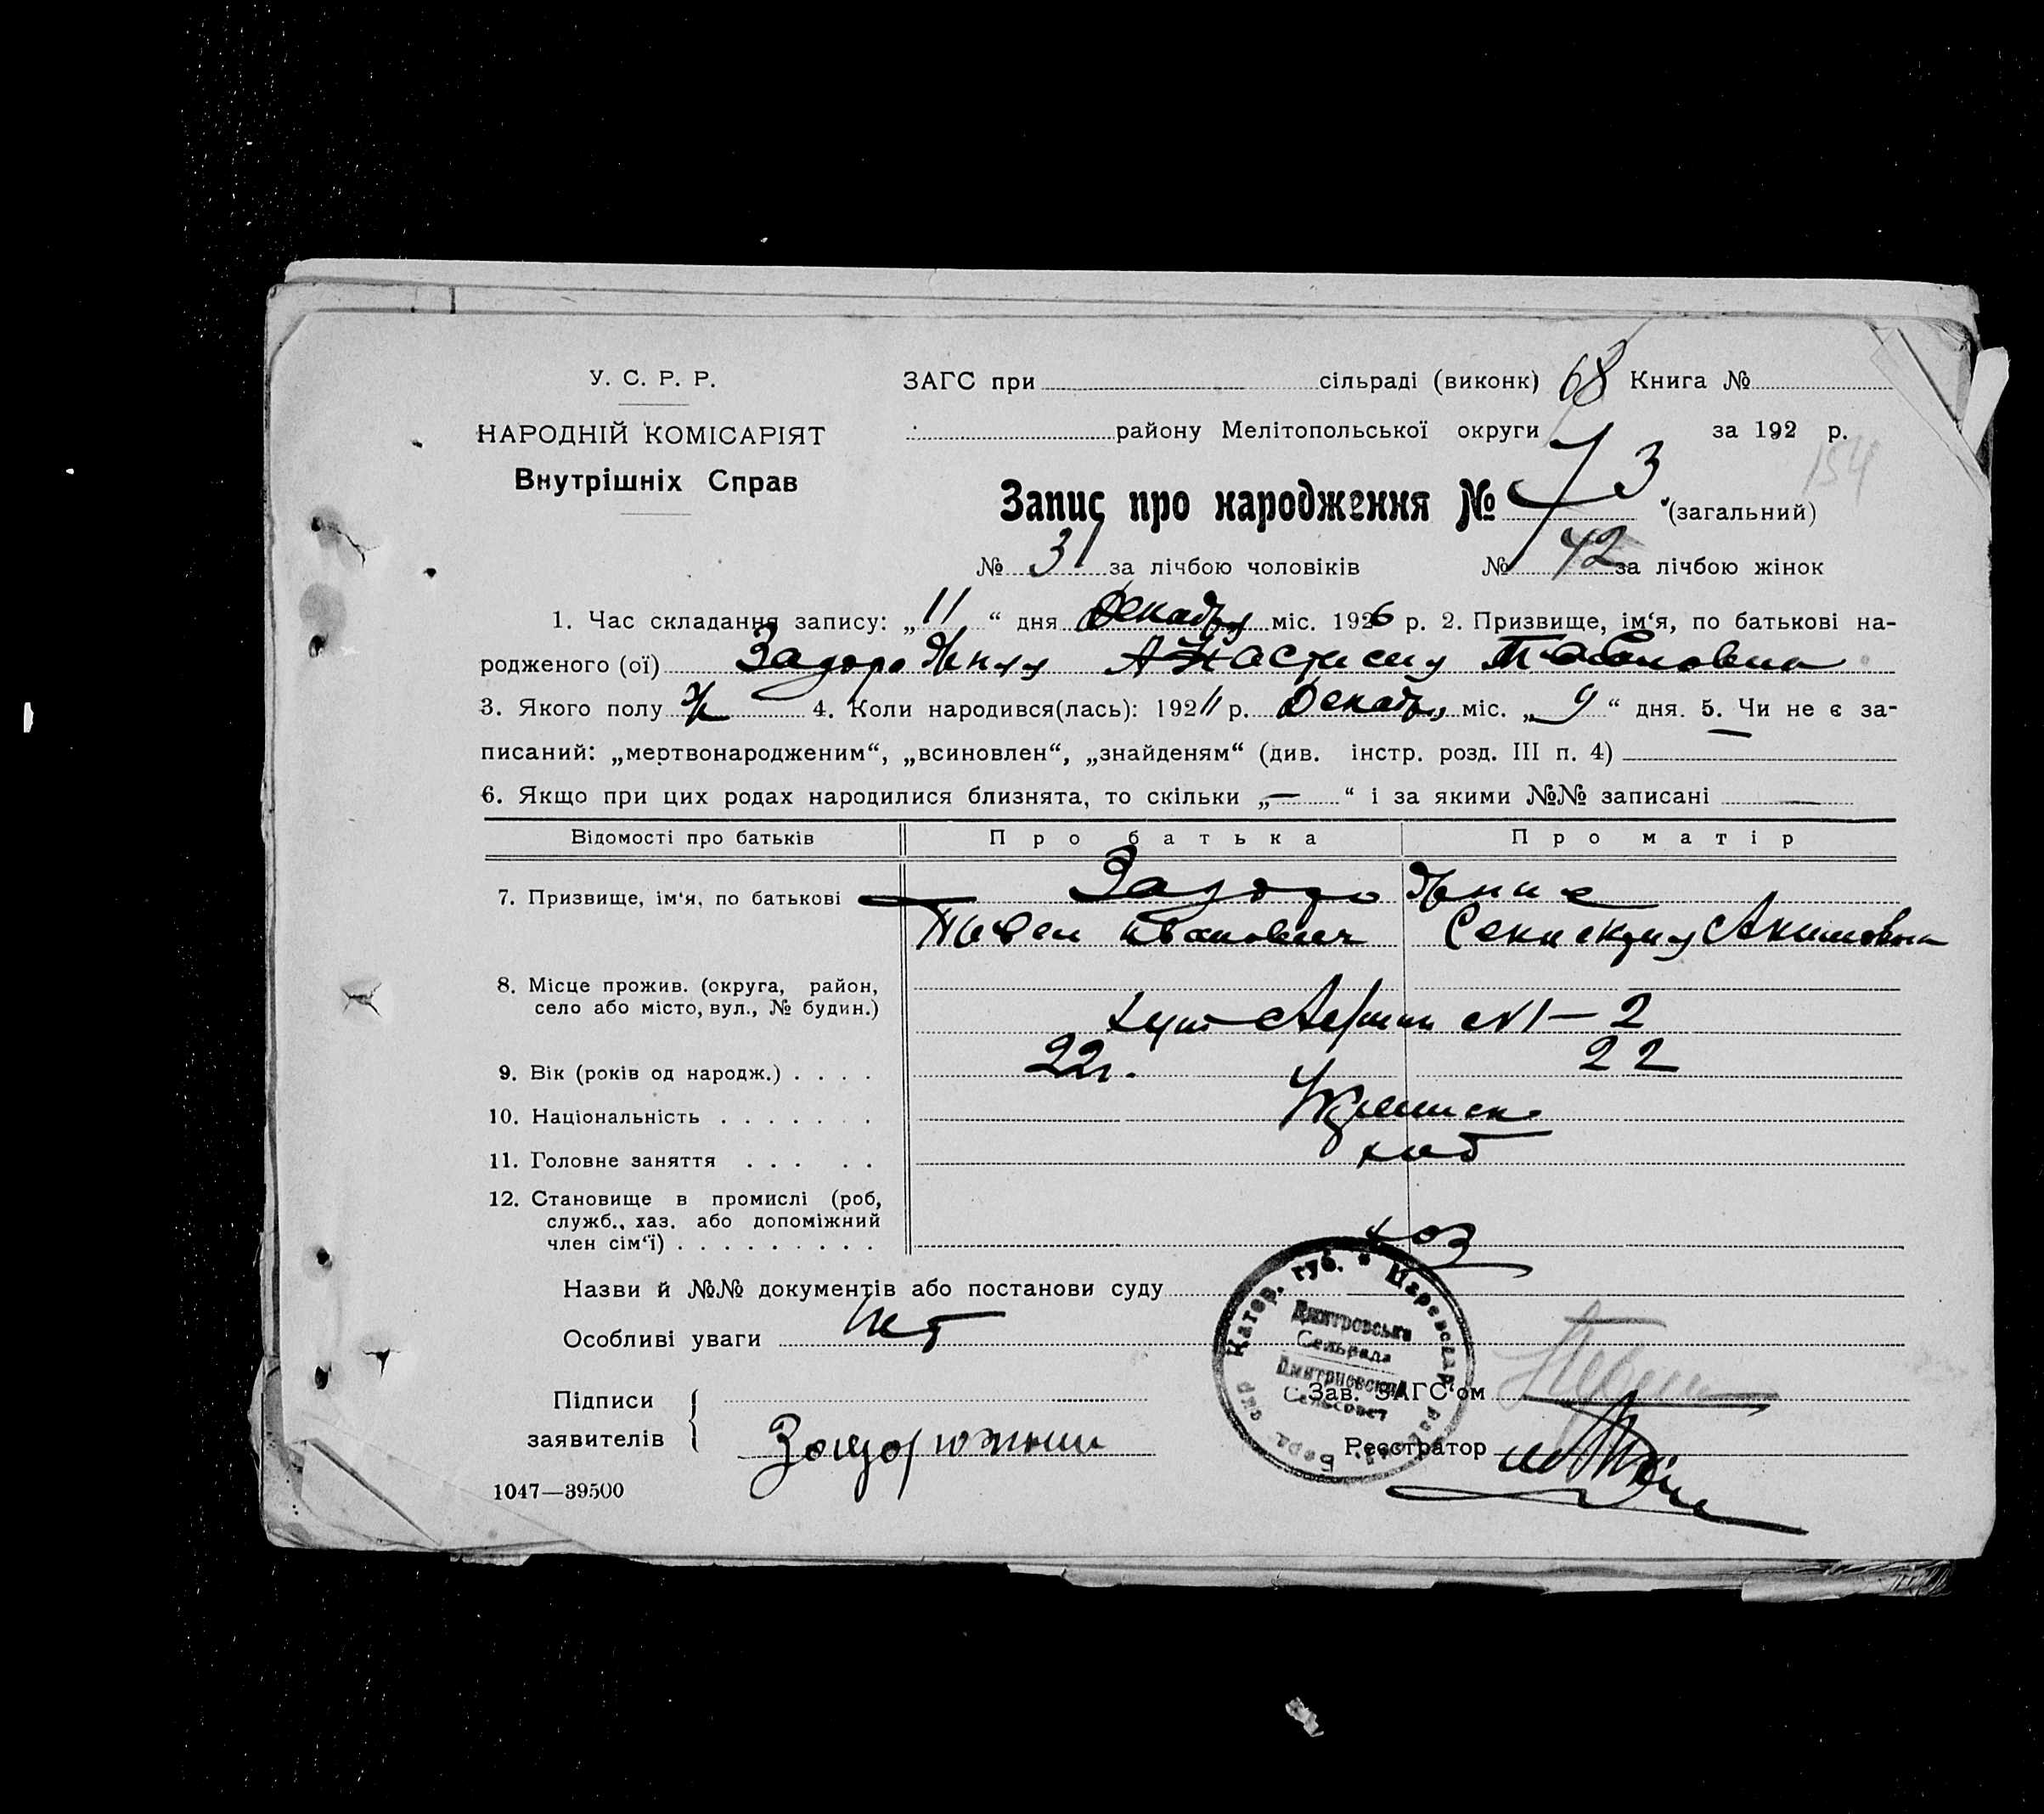 У. С. Р. Р.
НАРОДНІЙ КОМІСАРІЯТ
Внутрішніх Справ
ЗАГС при сільраді (виконк) 68 Книга №
району Мелітопольської округи за 192 р.
154
Запис про народження № 73 (загальний)
№ 31 за лічбою чоловіків № 42 за лічбою жінок
1. Час складання запису: „11“ дня Декабря міс. 1926 р. 2. Призвище, ім‘я, по батькові на-
родженого (ої) Задорожная Анастасия Павловна
3. Якого полу ж 4. Коли народився(лась): 192 р. Декабр, міс. „9“ дня. 5. Чи не є за-
писаний: „мертвонародженим“, „всиновлен“, „знайденям“ (див. інстр. розд. III п. 4)
6. Якщо при цих родах народилися близнята, то скільки „—“ і за якими №№ записані
Відомості про батьків Про батька Про матір
7. Призвище, ім‘я, по батькові Задорожние
Павел Иванович Акимовна
8. Місце прожив. (округа, район,
село або місто, вул., № будин.)
хут №1—2
9. Вік (років од народж.) . . . . 22г. 22
10. Національність . . . . . . .
11. Головне заняття . . . . . хлеб
12. Становище в промислі (роб,
служб., хаз. або допоміжний
член сім‘ї) . . . . . . . . . хоз
Назви й №№ документів або постанови суду
Особливі уваги Нет
Катер. губ. * Царевская
Дмитровська
Сельрада
Дмитриевский
Сельсовет
Підписи
заявителів
Задорожний
Зав. ЗАГС‘ом
Реєстратор
1047—39500